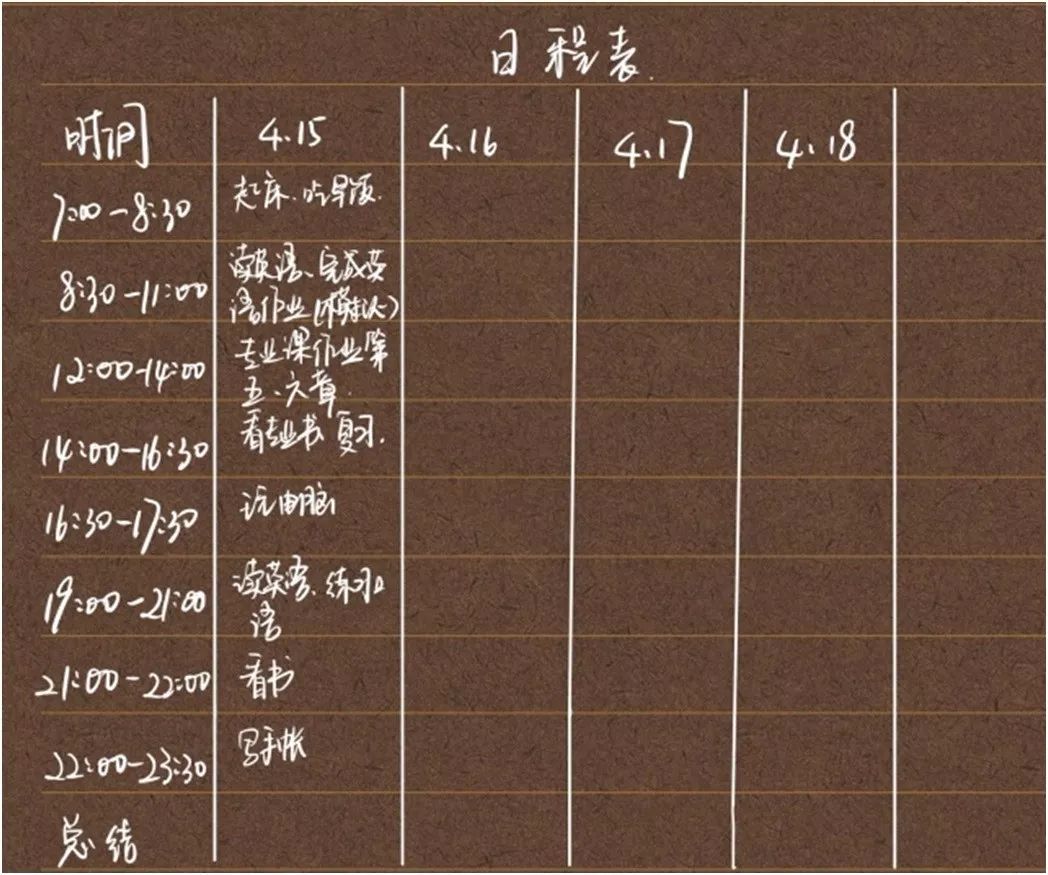 日程表
时间 4.15 4.16 4.17 4.18
7:00-8:30 起床、吃早饭.
8:30-11:00 读英语、完成英
语作业(模拟卷)
12:00-14:00 专业课作业第
五、六章.
14:00-16:30 看专业书 复习.
16:30-17:30 玩电脑
19:00-21:00 读英语、练习口
语
21:00-22:00 看书
22:00-23:30 写手帐
总结